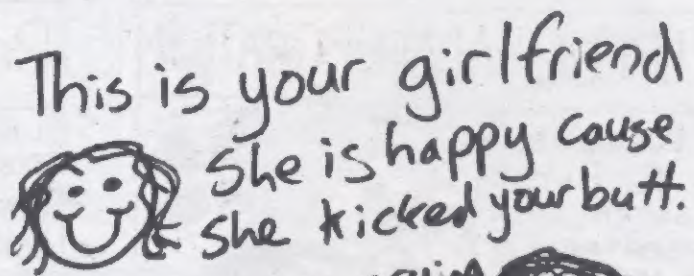 This is your girlfriend
She is happy cause
she kicked your butt.